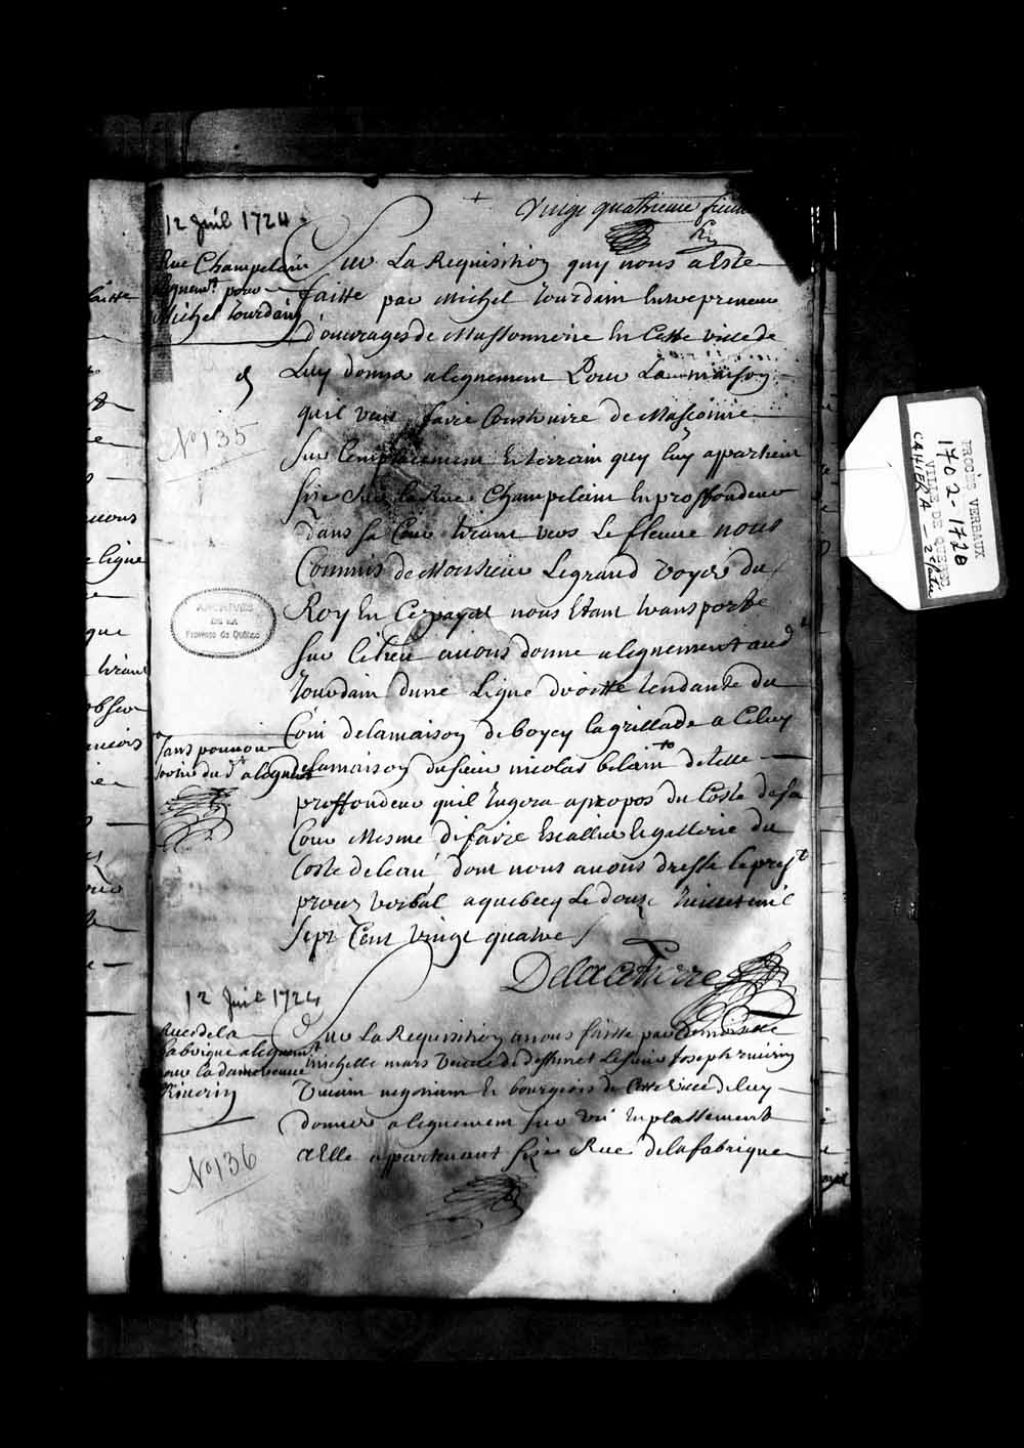 Vingt quatrieme
12 Juil 1724
Rue Champelain
alignemt. pour
Michel Jourdain
Sur La Requisition quy nous a Esté
faitte par Michel Jourdain Entrepreneur
d'ouvrages de Massonnerie En Cette ville de
Luy donner alignement Pour La maison
quil veut faire Construire de Massonnerie
Sur Lemplacement Et terrain quy luy appartient
size Sur la Rue Champelain En proffondeur
Dans sa Cour tirant vers Le fleuve nous
Commis de Monsieur Legrand Voyer du
Roy En Ce payat nous Etant transporté
Sur Le lieu avons donné alignement aud
Jourdain dune Ligne droitte tendante du
Coin delamaison de boyey lagrillade a Celuy
delamaison du sieur nicolas belain de telle
proffondeur quil Jugera apropos du Costé de sa
Cour Mesme de faire Escallier Et gallerie du
Costé deleau dont nous avons dressé le prest
proces verbal a quebecq Le douze Juillet mil
Sept Cent vingt quatre /
sans pouvoir
sortir du dt alognemt
No 135
ARCHIVES
DE LA
Province de Québec
Delacetierre
12 Juil 1724
Rue de la
fabrique alignemt
pour la dame veuve
Riverin
No 136
Sur La Requisition a nous faitte par Demoiselle
michelle mars Veuve de deffunct Le sieur Joseph riverin
Vivant negotiant Et bourgeois de Cette Ville de luy
donner alignement sur un Emplassement
a Elle appartenant size Rue delafabrique
PROCÈS VERBAUX
1702-1728
VILLE DE QUEBEC
CAHIER A